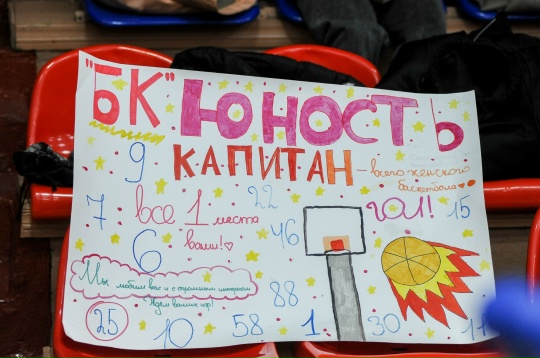 "БК" ЮНОСТЬ
КАПИТАН - всего женского
баскетбола
9
22
7
все 1 места
вами!
ГОЛ!
15
46
6
Мы любим вас и с огромным интересом
ждём ваших игр!
88
25
10
58
1
30
11